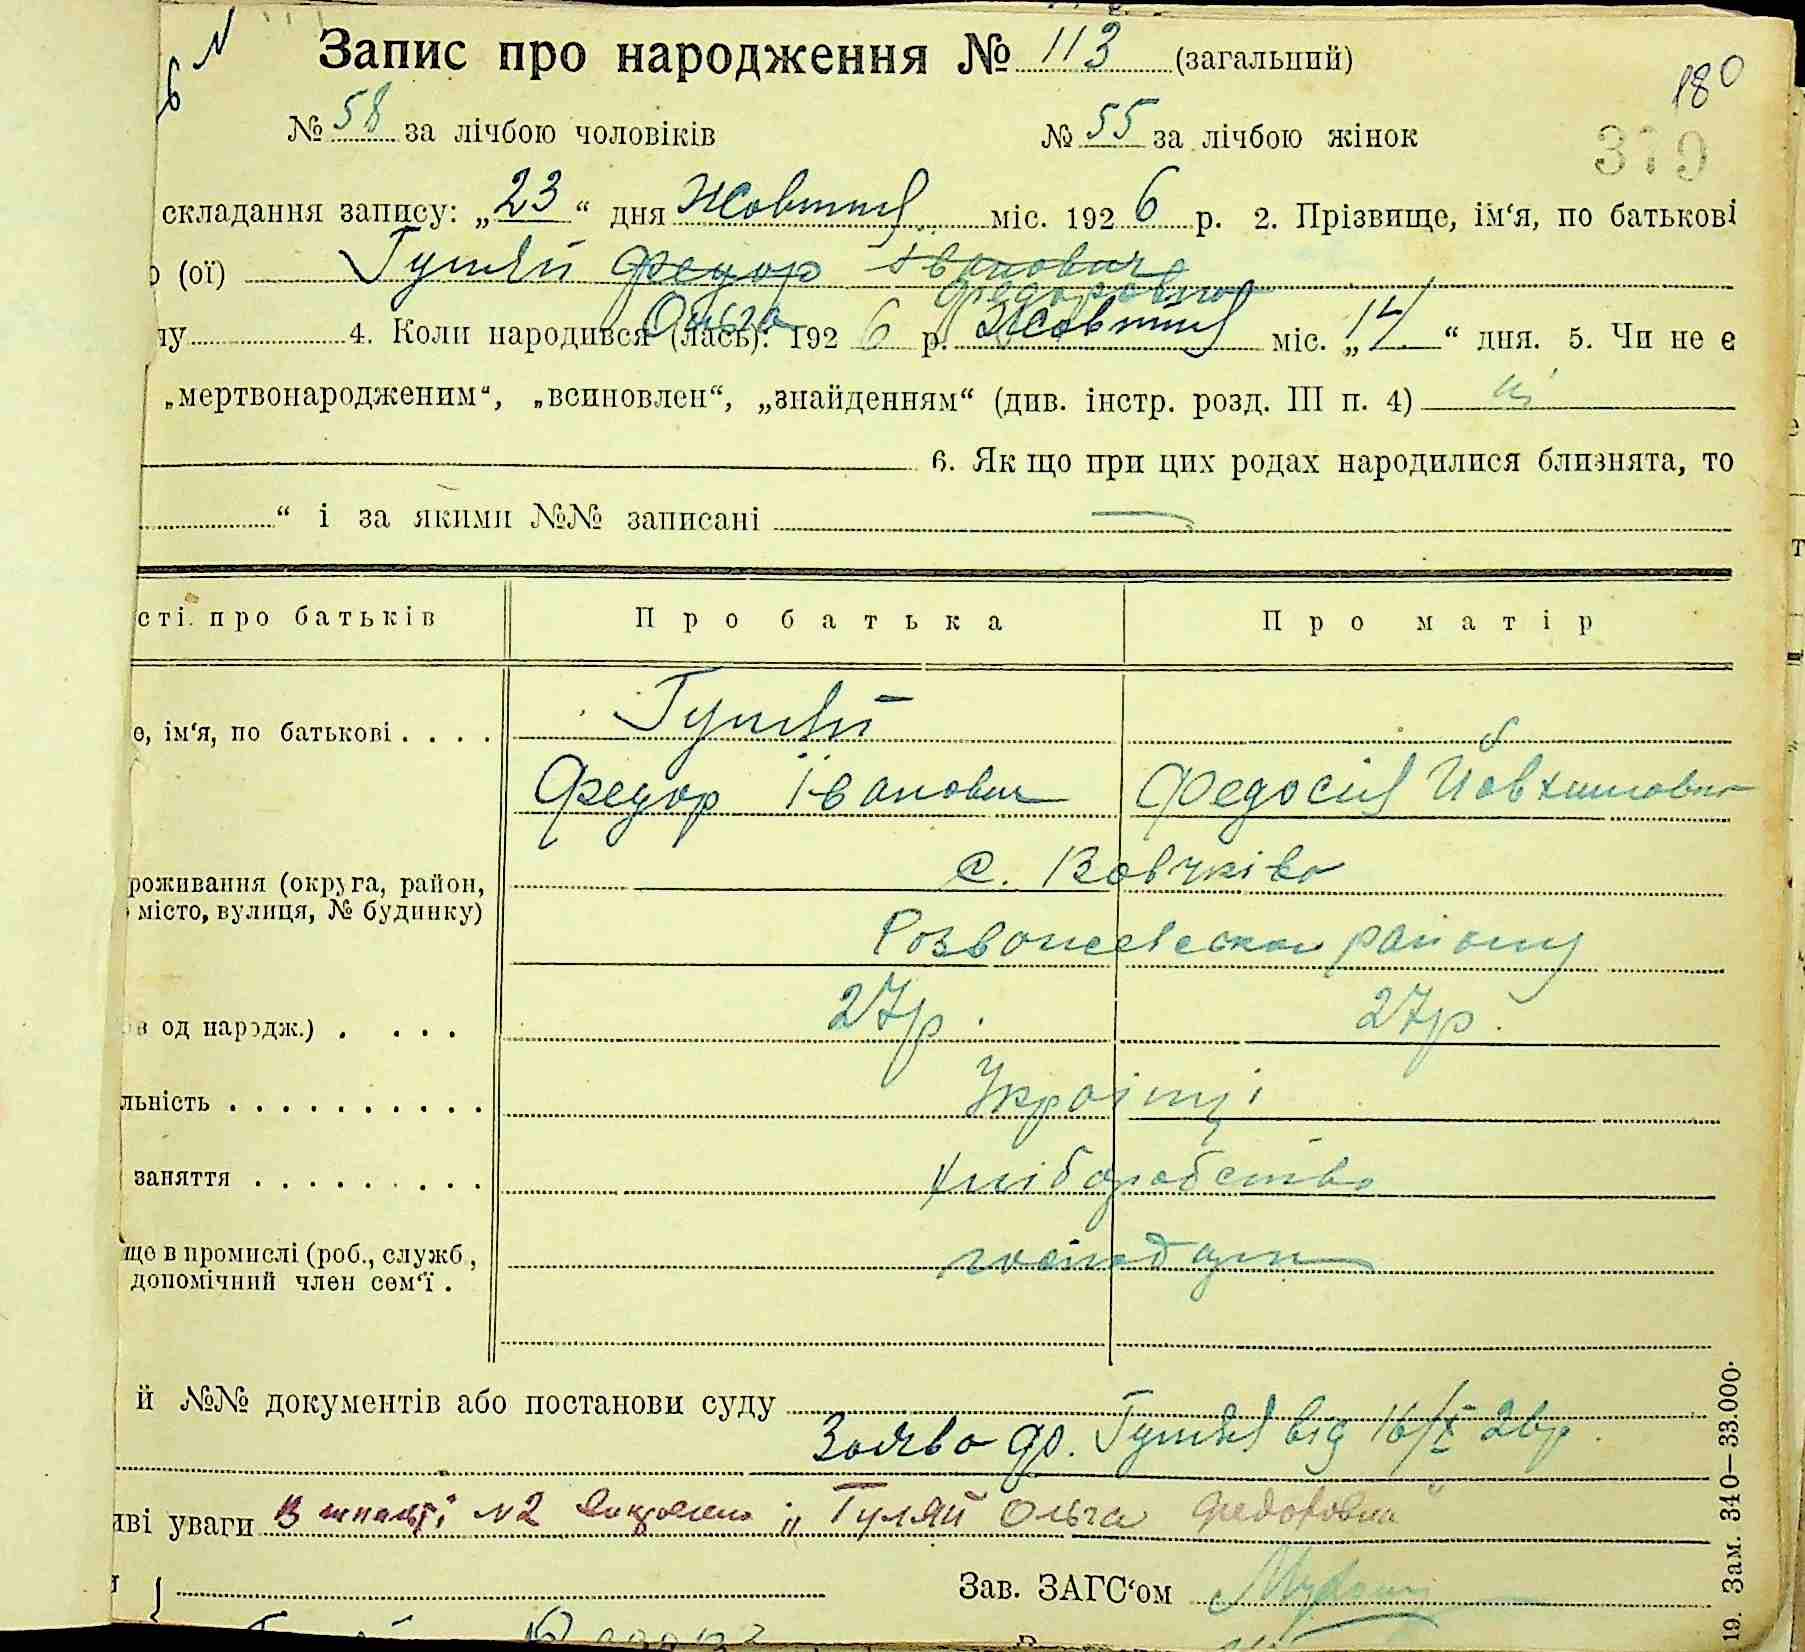 Запис про народження № 113 (загальний)
180
№ 58 за лічбою чоловіків № 55 за лічбою жінок
379
складання запису: „23“ дня Жовтня міс. 1926 р. 2. Прізвище, ім‘я, по батькові
о (ої) Гуляй Федор Іванович
Федоровна
Ольга
лу 4. Коли народився (лась): 1926 р. Жовтня міс. „14“ дня. 5. Чи не є
„мертвонародженим“, „всиновлен“, „знайденням“ (див. інстр. розд. III п. 4) ні
6. Як що при цих родах народилися близнята, то
“ і за якими №№ записані —
сті про батьків Про батька Про матір
Гуляй
е, ім‘я, по батькові . . . .
Федор Іванович Федосія Йовхимовна
с. Вовчкова
роживання (округа, район,
місто, вулиця, № будинку)
Розважевском району
ів од народж.) . . . . 27р. 27р.
льність . . . . . . . . . . Українці
заняття . . . . . . . . . хліборобство
ще в промислі (роб., служб.,
допомічний член сем‘ї .
господар
й №№ документів або постанови суду
Заява гр. Гуляя від 16/X 26р.
иві уваги В шпальті №2 „Гуляй Ольга Федоровна“
Зав. ЗАГС‘ом
19. Зам. 340—33.000.